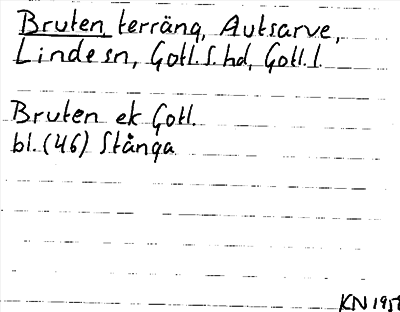 Bruten terräng, Autsarve,
Linde sn, Gotl. S. hd, Gotl. l.
Bruten ek Gotl.
bl. (46) Stånga
KN